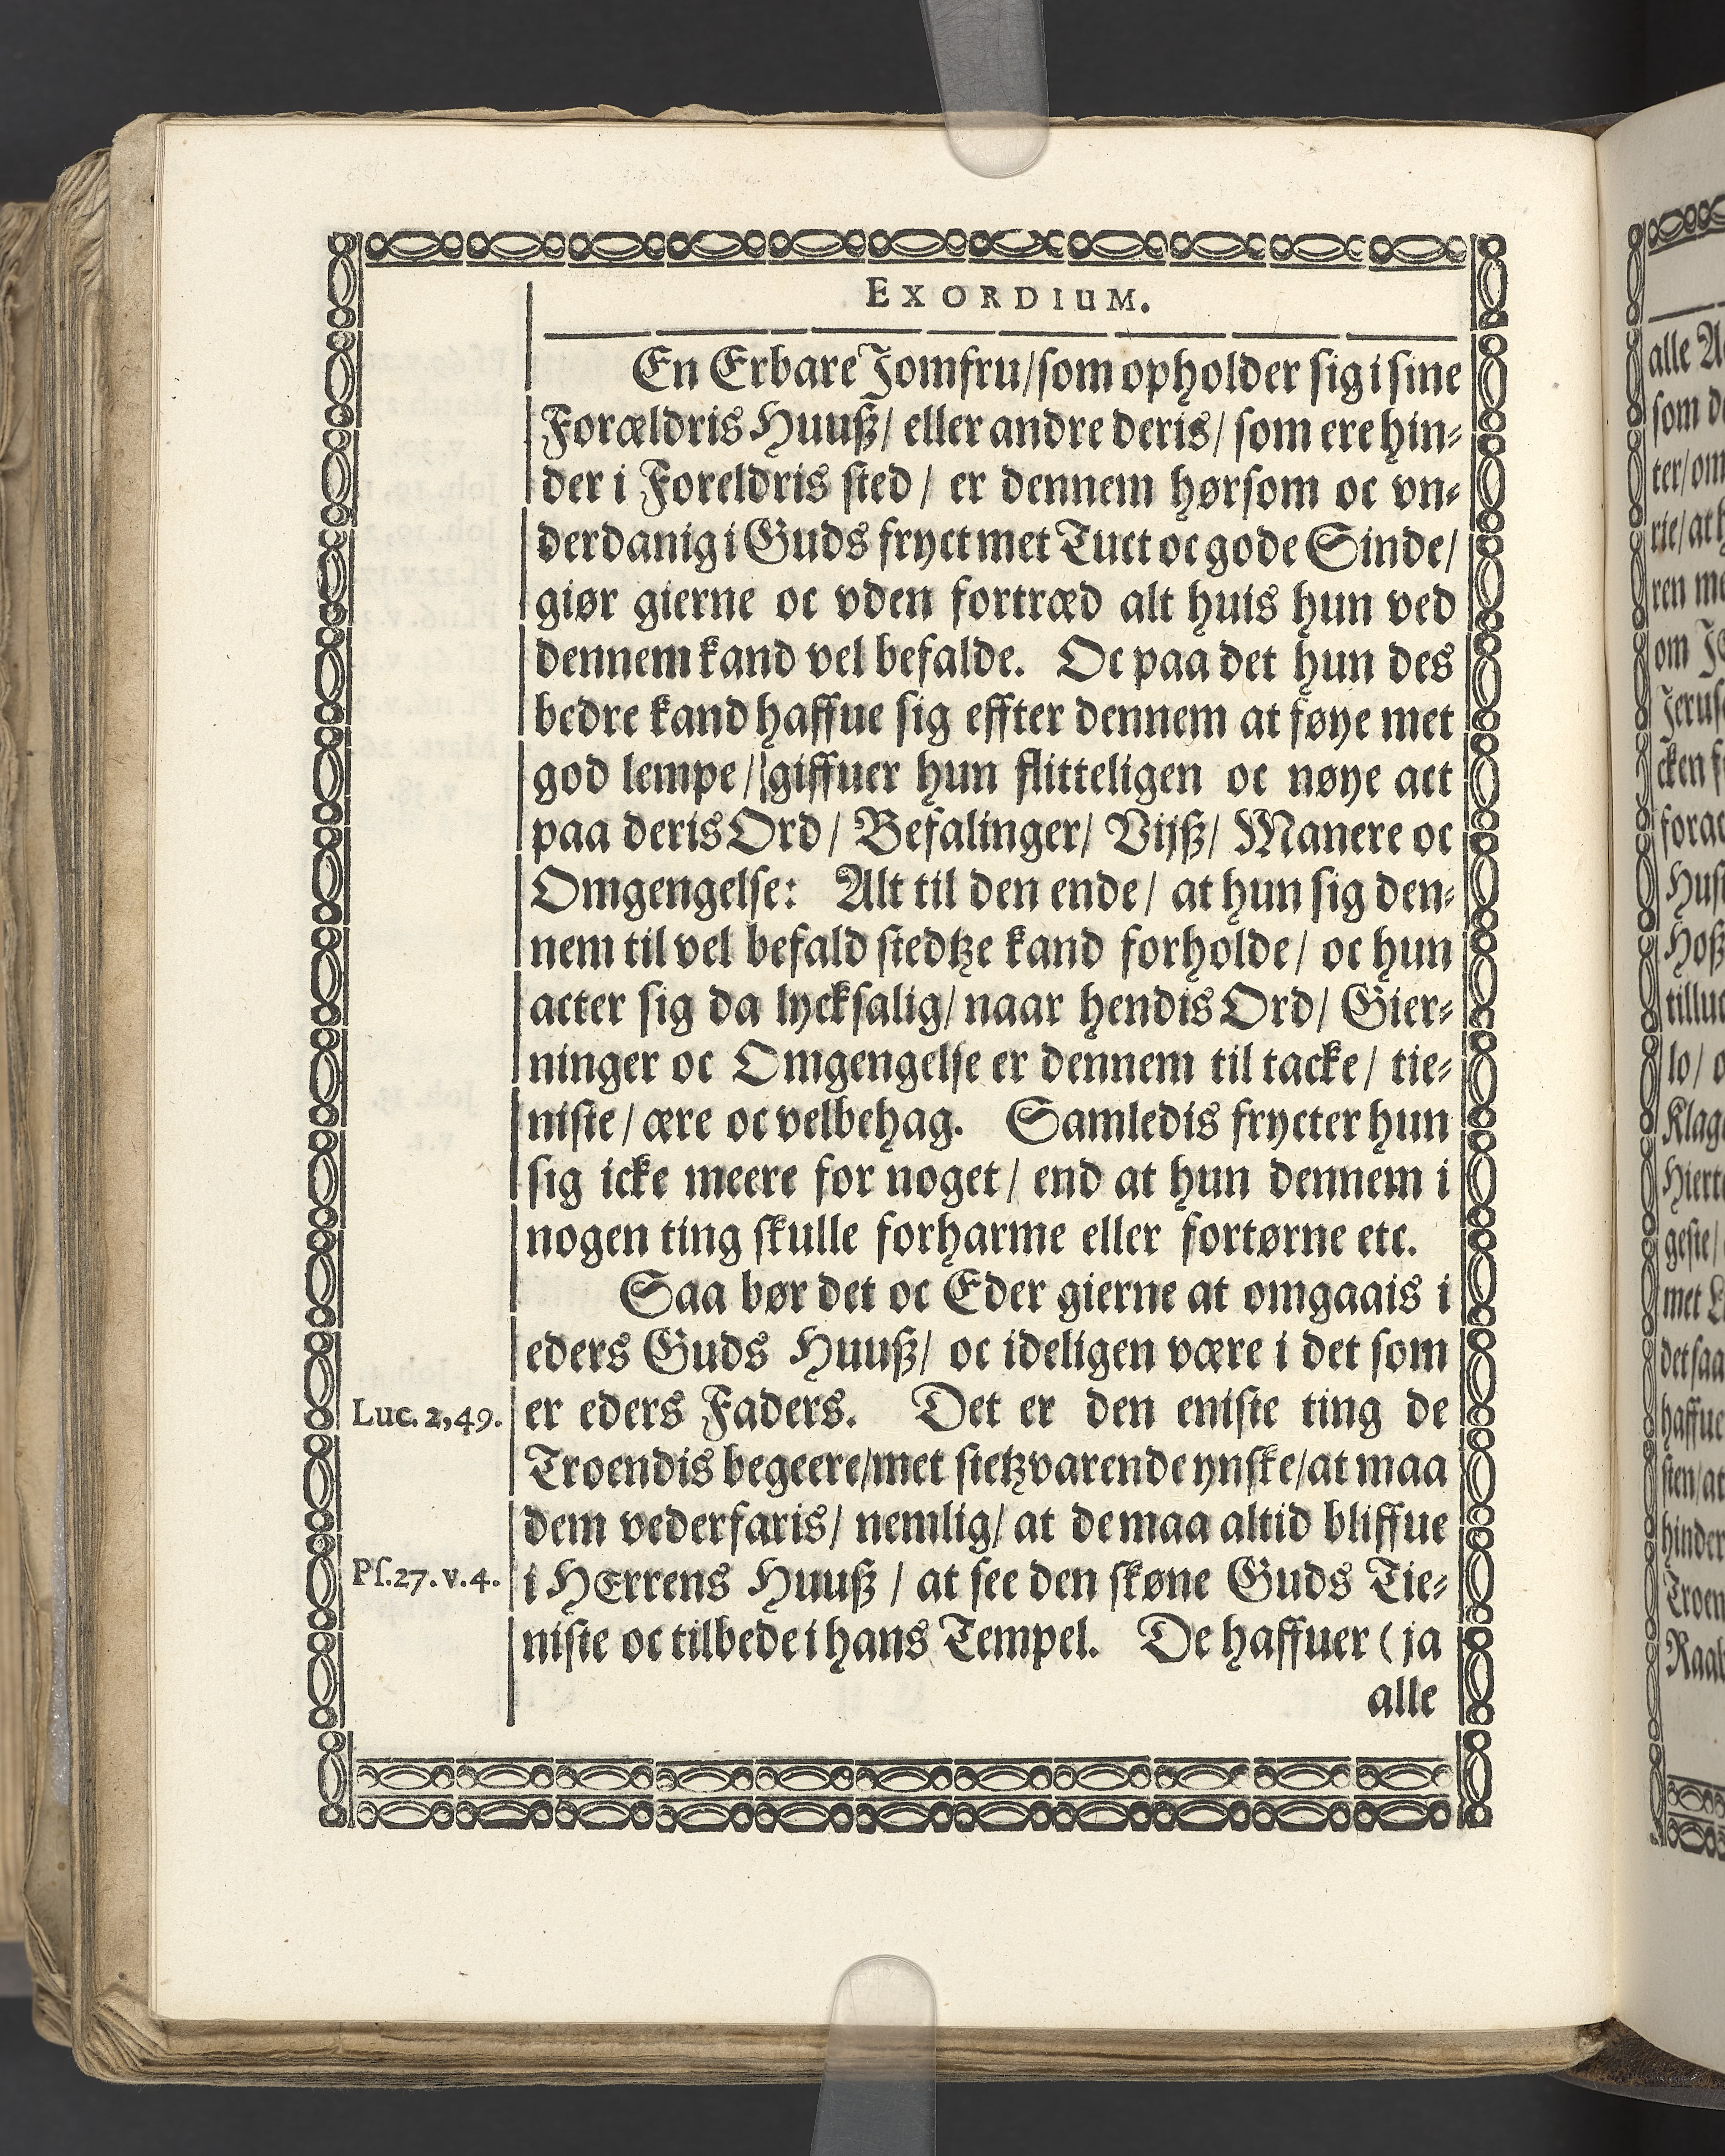 EXORDIUM.
En Erbare Jomfru/som opholder sig i sine
Forældris Huuß/ eller andre deris/ som ere hin-
der i Foreldris sted/ er dennem hørsom oc vn-
derdanig i Guds fryct met Tuct oc gode Sinde/
giør gierne oc vden fortræd alt huis hun ved
dennem kand vel befalde. Oc paa det hun des
bedre kand haffue sig effter dennem at føye met
god lempe/ giffuer hun flitteligen oc nøye act
paa deris Ord/ Befalinger/ Vijß/ Manere oc
Omgengelse: Alt til den ende/ at hun sig den-
nem til vel befald stedtze kand forholde/ oc hun
acter sig da lycksalig/ naar hendis Ord/ Gier-
ninger oc Omgengelse er dennem til tacke/ tie-
niste/ ære oc velbehag. Samledis frycter hun
sig icke meere for noget/ end at hun dennem i
nogen ting skulle forharme eller fortørne etc.
Saa bør det oc Eder gierne at omgaais i
eders Guds Huuß/ oc ideligen være i det som
Luc. 2,49. er eders Faders. Det er den eniste ting de
Troendis begeere/met stetzvarende ynske/at maa
dem vederfaris/ nemlig/ at de maa altid bliffue
Ps.27.v.4. i HErrens Huuß/ at see den skøne Guds Tie-
niste oc tilbede i hans Tempel. De haffuer (ja
alle